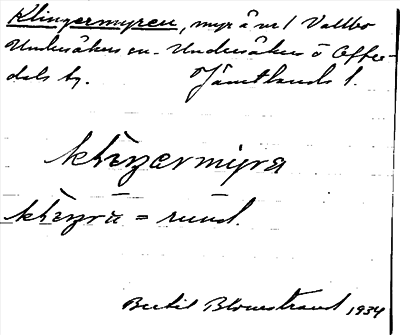 Klingermyren, myr å nr 1 Vallbo
Undersåkers sn. Undersåkers o Offer-
dals tg. Jämtlands l.
klingermyra
klingrä = rund.
Bertil Blomstrand 1934